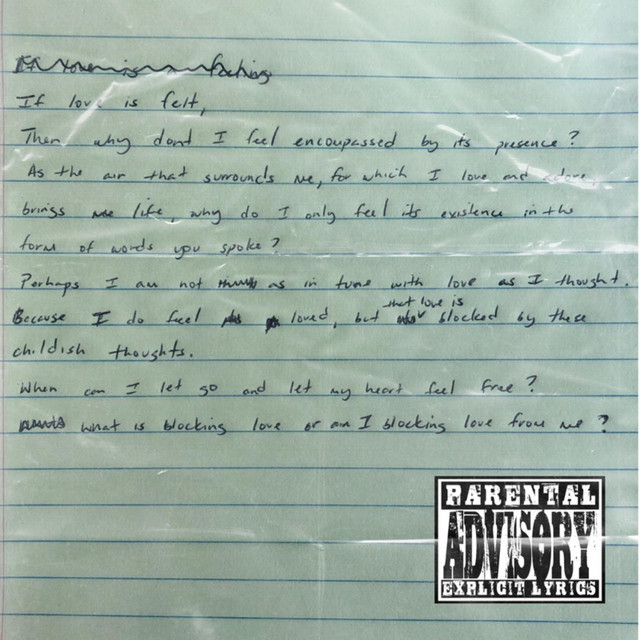 If love is felt,
Then why dont I feel encompassed by its presence?
As the air that surrounds me, for which I love and adore,
brings me life, why do I only feel its existence in the
form of words you spoke?
Perhaps I am not as in tune with love as I thought.
that love is
Because I do feel loved, but blocked by these
childish thoughts.
When can I let go and let my heart feel free?
what is blocking love or am I blocking love from me?
PARENTAL
ADVISORY
EXPLICIT LYRICS